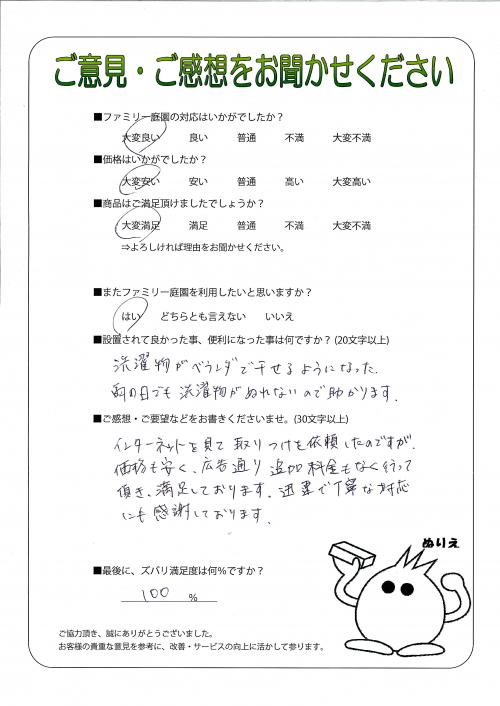 ご意見・ご感想をお聞かせください
■ファミリー庭園の対応はいかがでしたか？
大変良い 良い 普通 不満 大変不満
■価格はいかがでしたか？
大変安い 安い 普通 高い 大変高い
■商品はご満足頂けましたでしょうか？
大変満足 満足 普通 不満 大変不満
⇒よろしければ理由をお聞かせください。
■またファミリー庭園を利用したいと思いますか？
はい どちらとも言えない いいえ
■設置されて良かった事、便利になった事は何ですか？(20文字以上)
洗濯物がベランダで干せるようになった.
雨の日でも洗濯物がぬれないので助かります.
■ご感想・ご要望などをお書きくださいませ。(30文字以上)
インターネットを見て取りつけを依頼したのですが.
価格も安く、広告通り追加料金もなく行って
頂き、満足しております. 迅速で丁寧な対応
にも感謝しております.
ぬりえ
■最後に、ズバリ満足度は何%ですか？
100 %
ご協力頂き、誠にありがとうございました。
お客様の貴重な意見を参考に、改善・サービスの向上に活かして参ります。